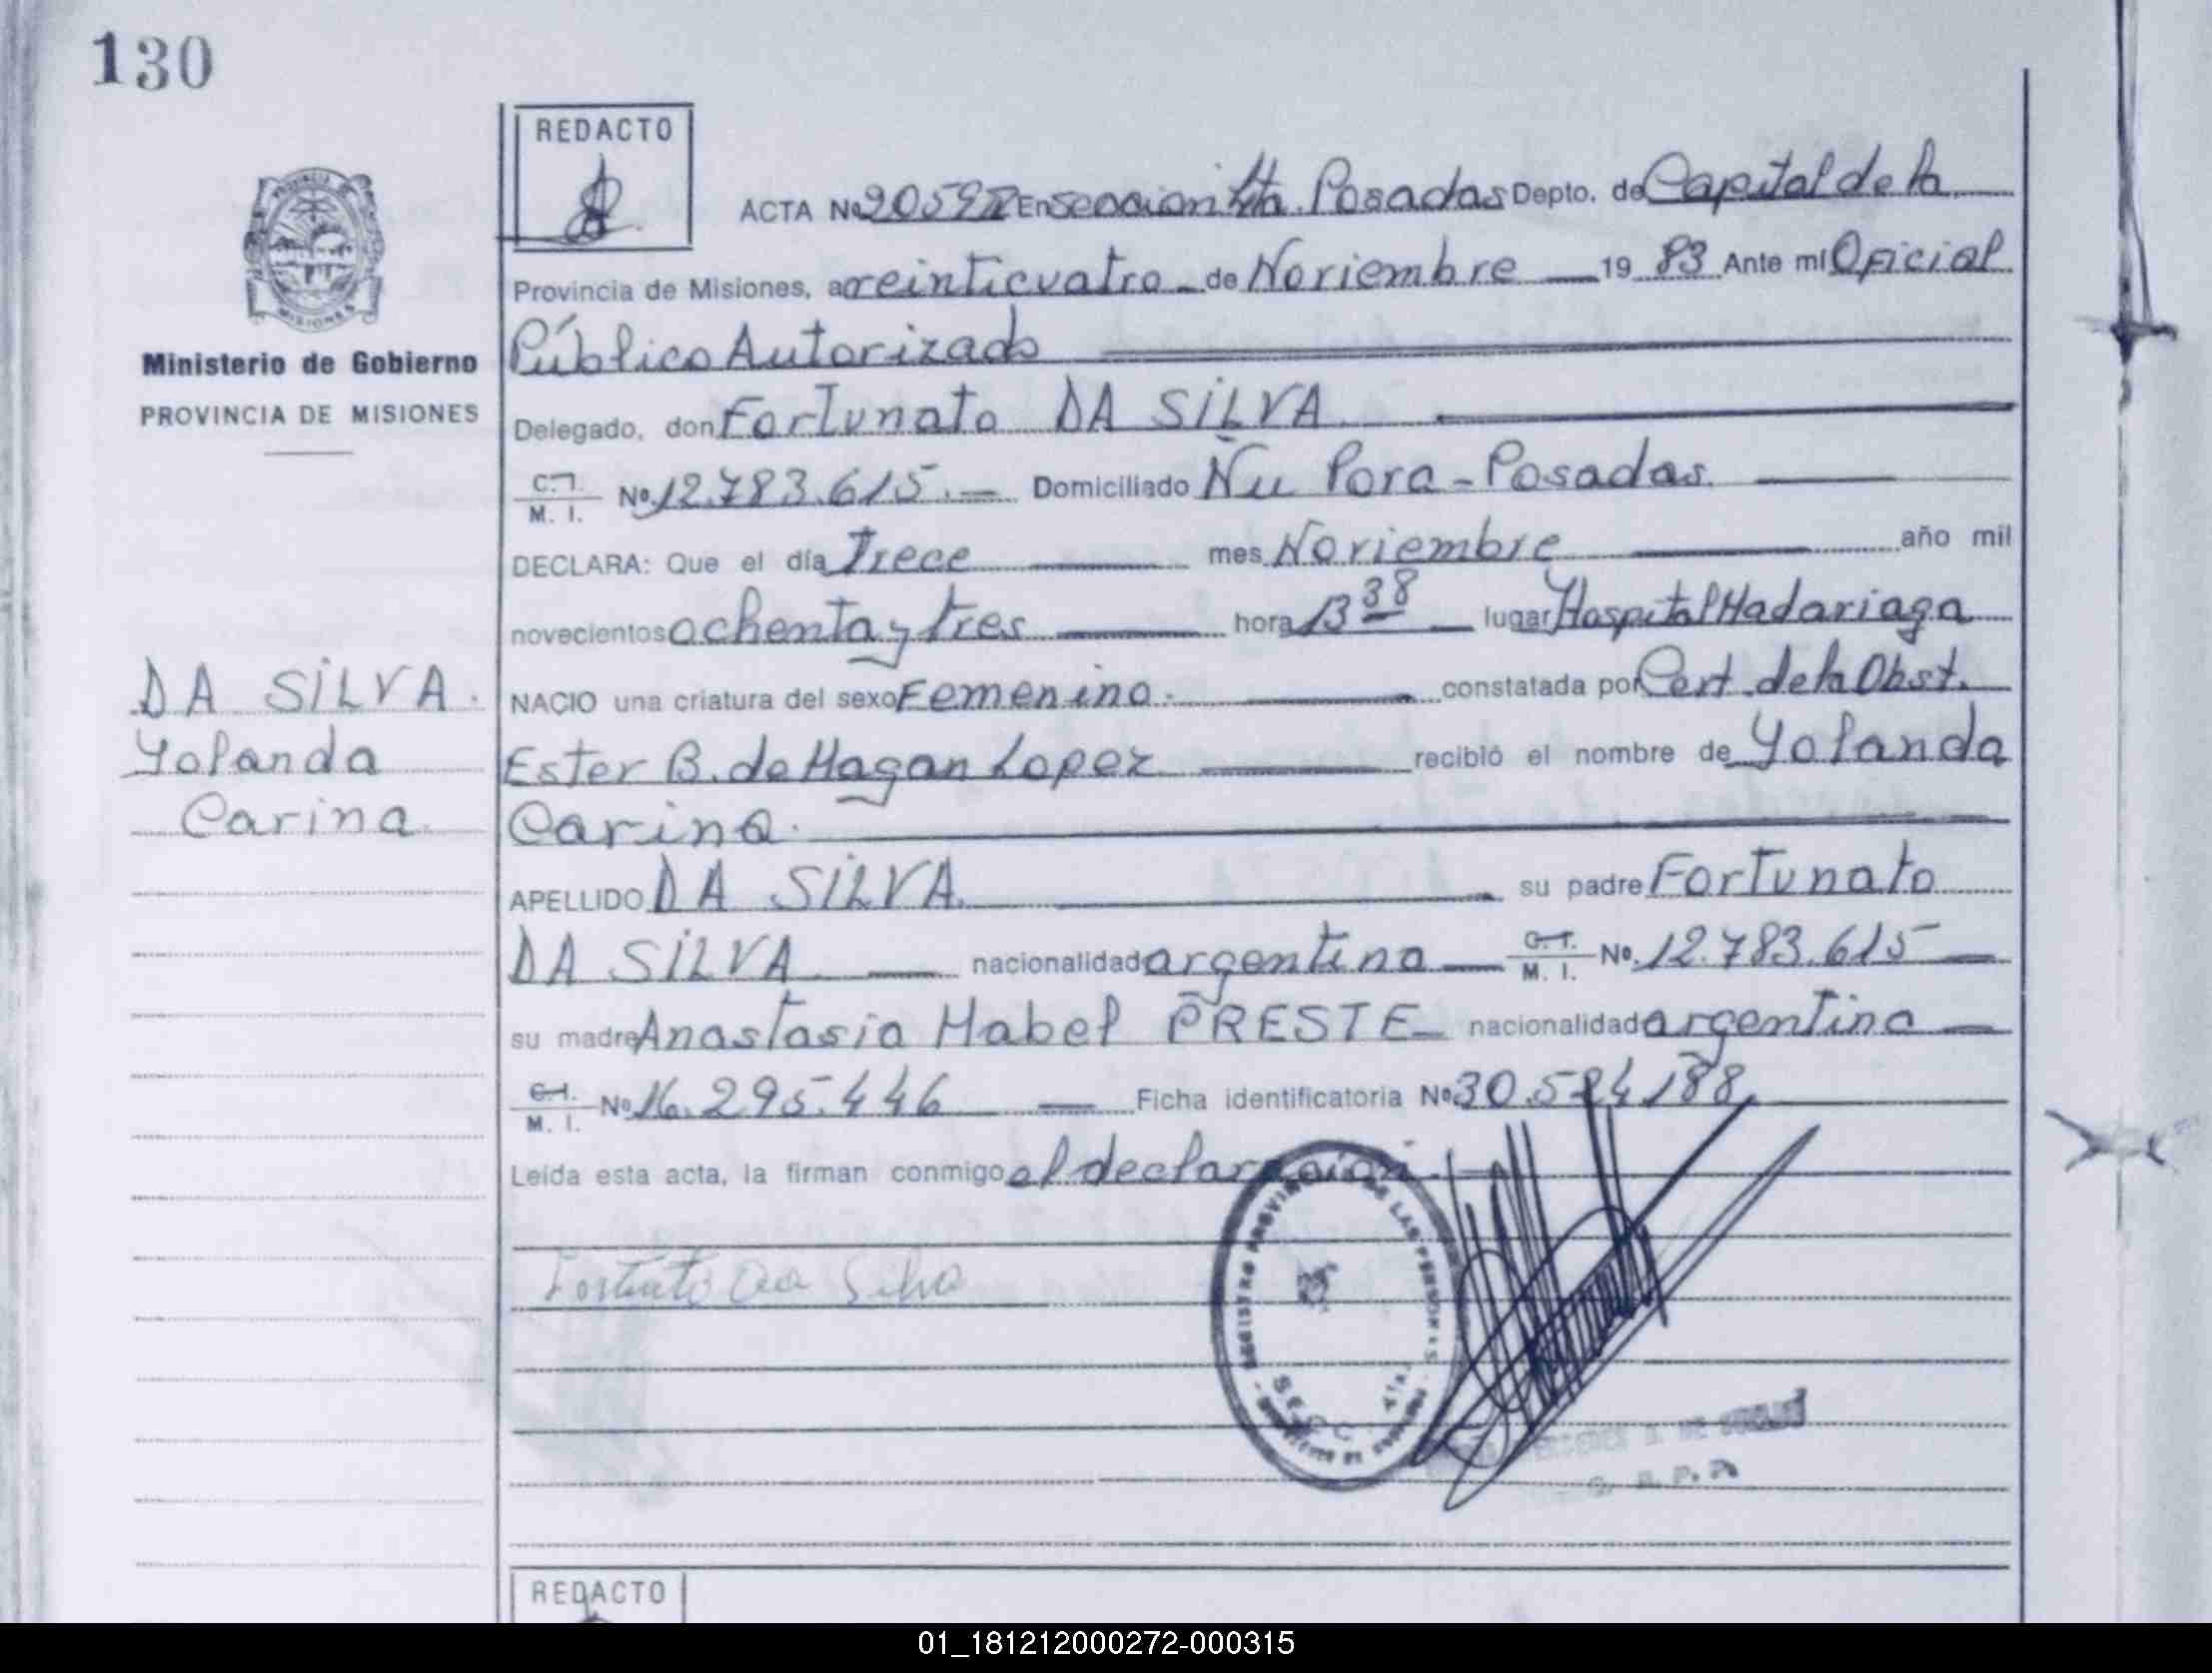 130
REDACTO
ACTA Nº En seccion 4ta. Posadas Depto. de Capital de la
Provincia de Misiones, a veinticuatro de Noviembre 19 83 Ante mi Oficial
Ministerio de Gobierno
PROVINCIA DE MISIONES
Público Autorizado
Delegado, don Fortunato DA SILVA.
C.I.
M. I. Nº 12.783.615. Domiciliado Ñu Pora - Posadas.
DECLARA: Que el día Trece mes Noviembre año mil
novecientos ochenta y tres hora 13 38 lugar Hospital Madariaga
DA SILVA.
Yolanda
Carina.
NACIO una criatura del sexo Femenino. constatada por Cert. de la Obst.
Ester B. de Magan Lopez recibió el nombre de Yolanda
Carina.
APELLIDO DA SILVA. su padre Fortunato
DA SILVA nacionalidad argentina C.I. M. I. Nº 12.783.615
su madre Anastasia Mabel PRESTE nacionalidad argentina
C.I. M. I. Nº 16.295.446 Ficha identificatoria Nº 30.584.188.
Leída esta acta, la firman conmigo el declaracion.
Fortunato Da Silva
REGISTRO PROVINCIAL DE LAS PERSONAS
SECC. 4ta.
REDACTO
01_181212000272-000315